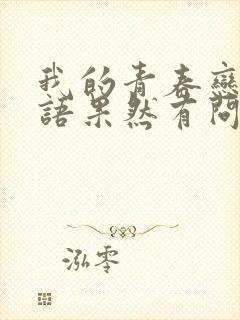 我的青春戀
語果然有問
泓零